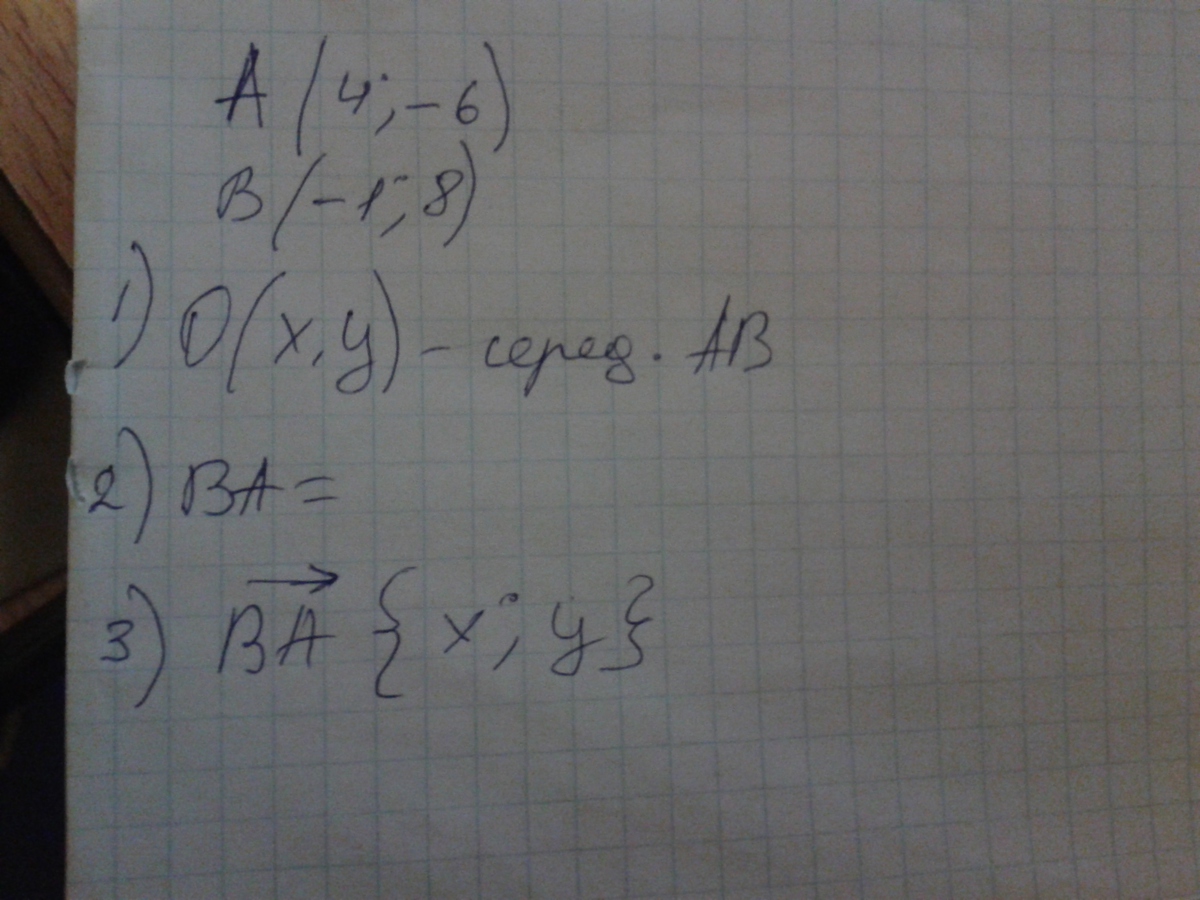 A (4; -6)
B (-1; 8)
1) O(x, y) - серед. AB
2) BA =
3) \overrightarrow{BA} {x; y}